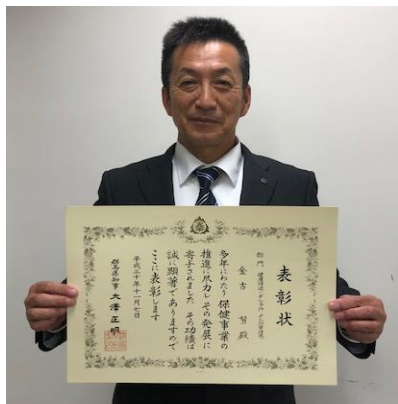 表彰状
部門 健康増進
金古 努 殿
多年にわたり保健事業の
推進に尽力しその発展に
寄与されました その功績は
誠に顕著でありますので
ここに表彰します
平成三十年十一月七日
群馬県知事 大澤正明